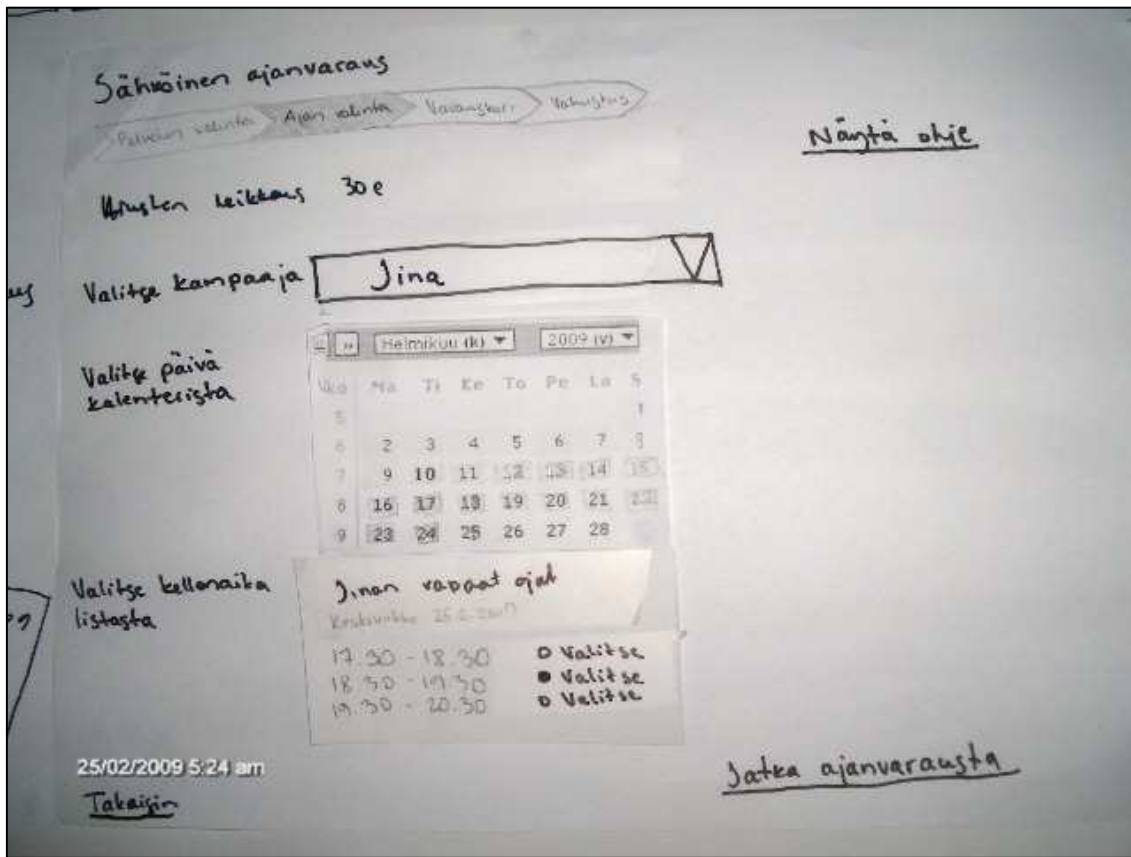 Sähköinen ajanvaraus
Palvelun valinta Ajan valinta Varauskori Vahvistus
Näytä ohje
Hiusten leikkaus 30 e
Valitse kampaaja Jina
Valitse päivä
kalenterista
» Helmikuu (k) 2009 (v)
Vko Ma Ti Ke To Pe La S
5 1
6 2 3 4 5 6 7 8
7 9 10 11 12 13 14 15
8 16 17 18 19 20 21 22
9 23 24 25 26 27 28
Valitse kellonaika
listasta
Jinan vapaat ajat
Keskiviikko 25.2.2009
17.30 - 18.30 Valitse
18.30 - 19.30 Valitse
19.30 - 20.30 Valitse
25/02/2009 5:24 am
Takaisin
Jatka ajanvarausta